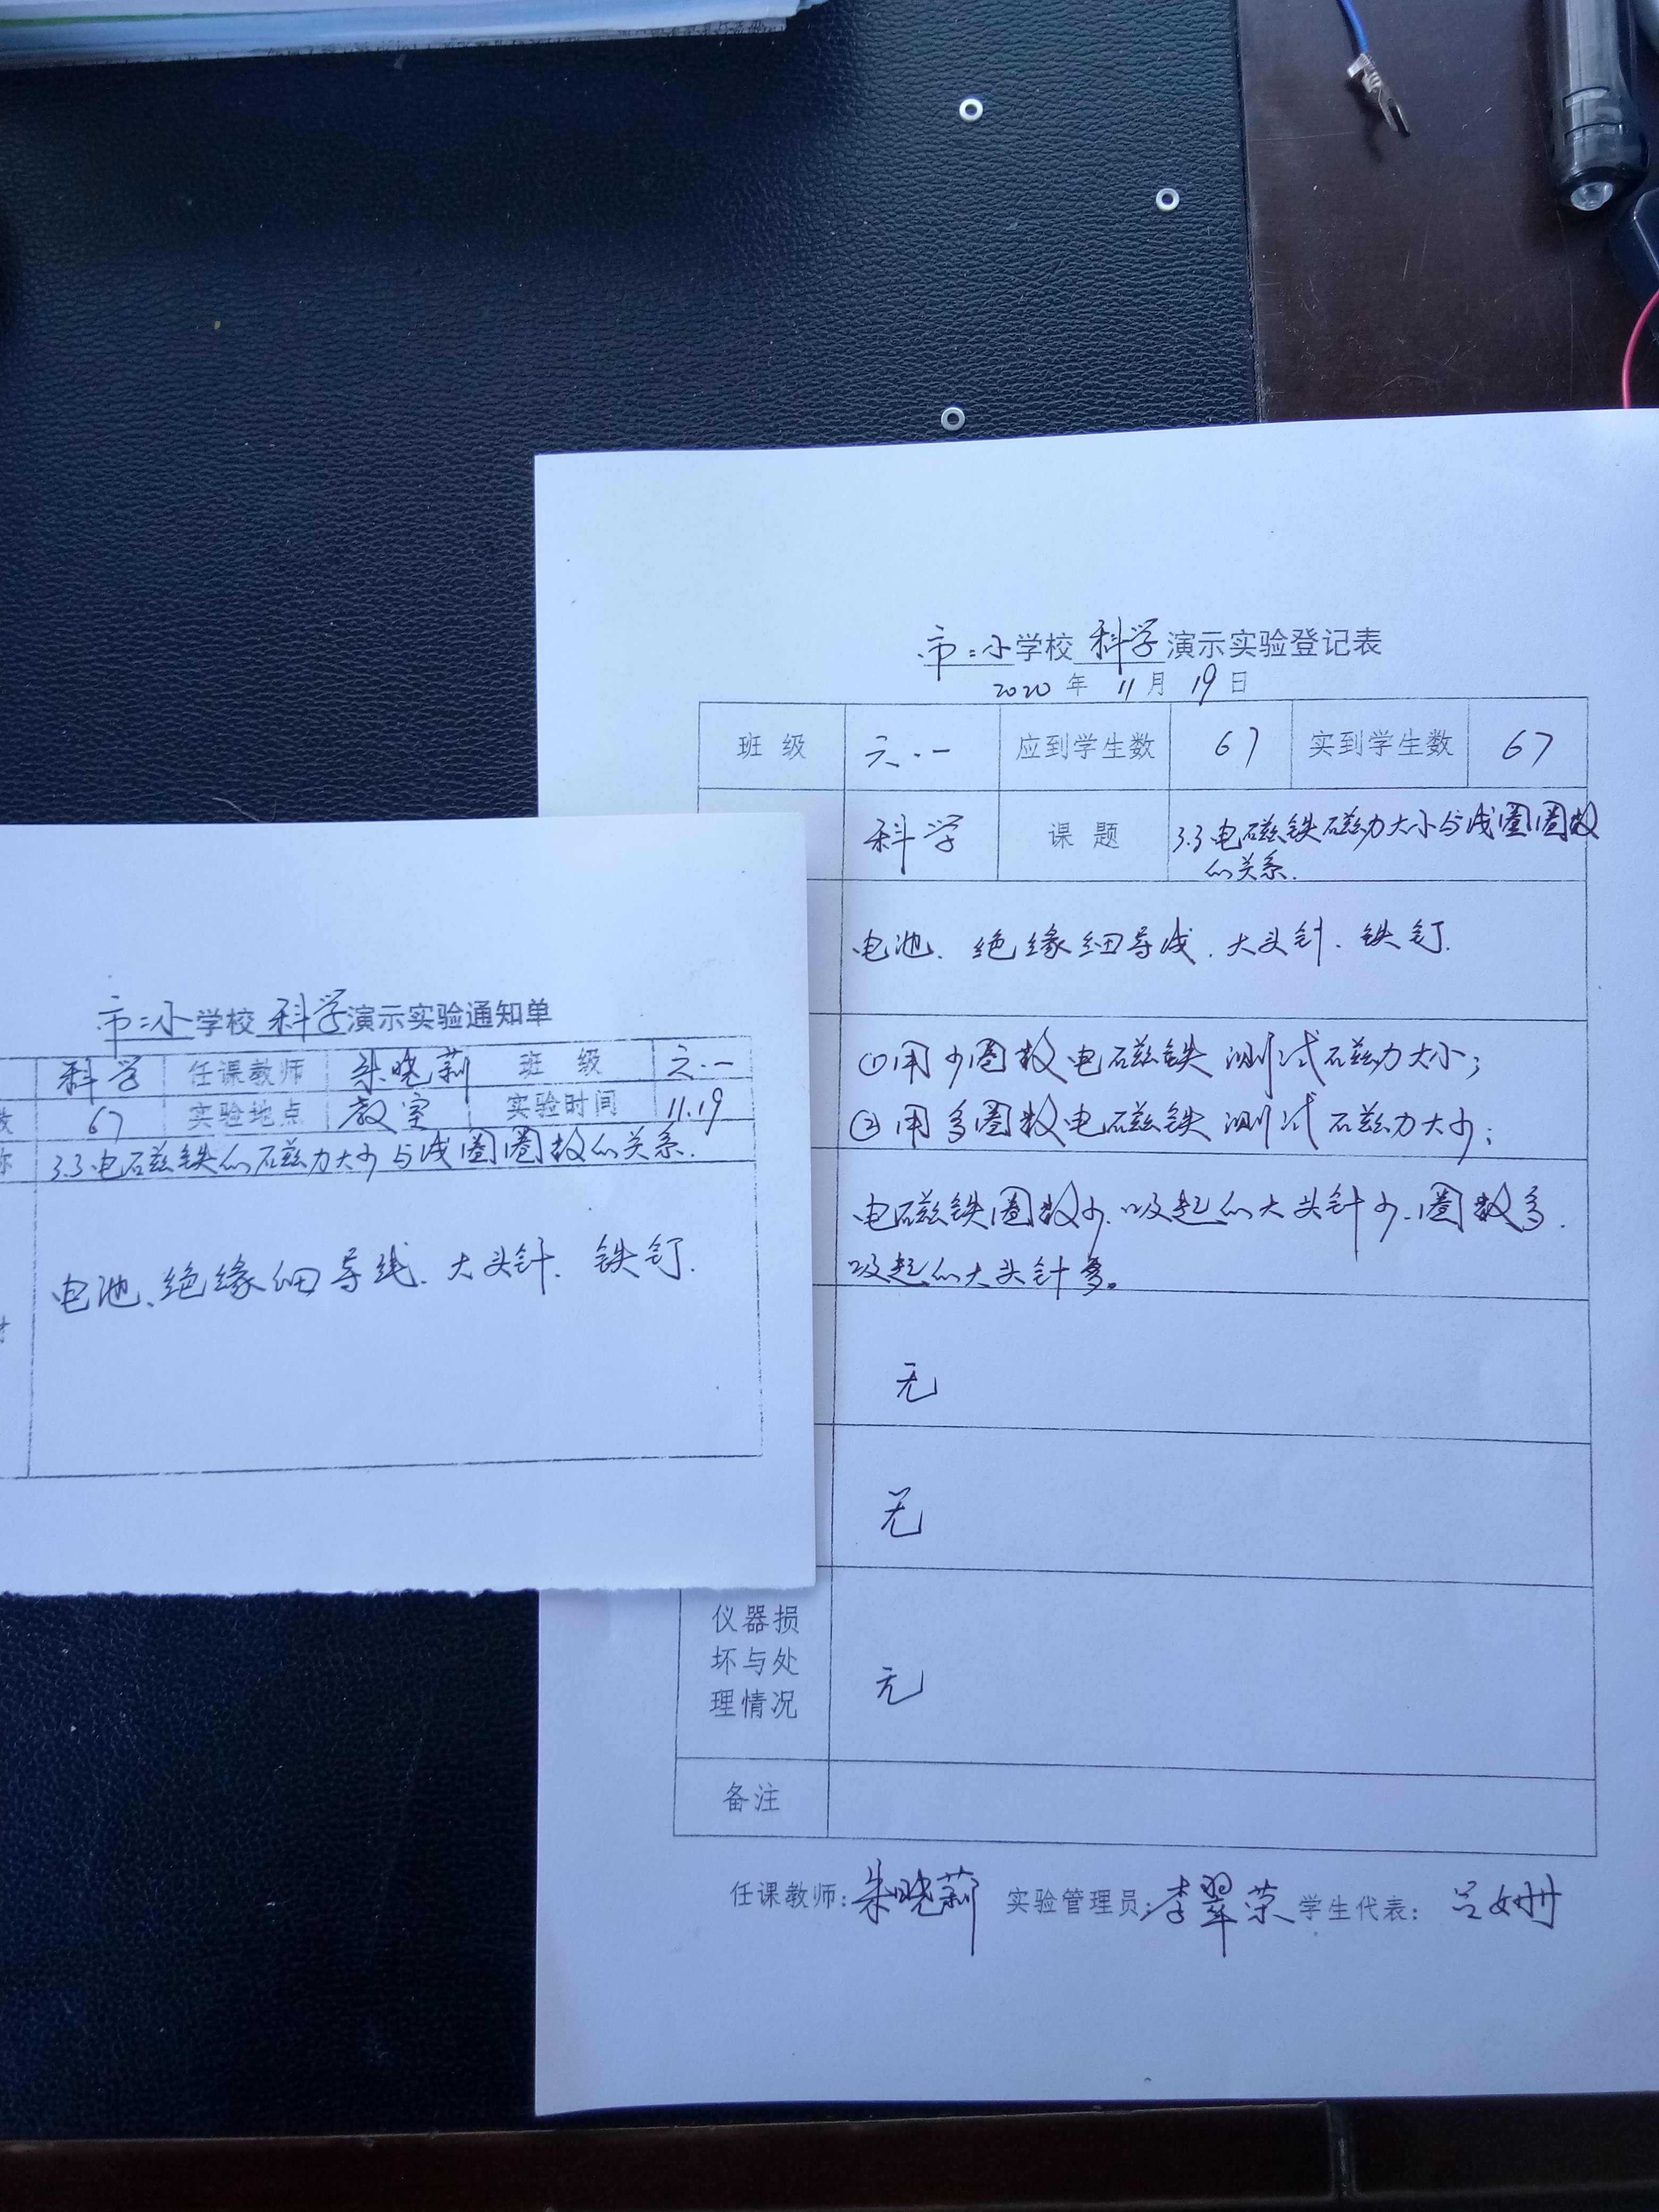 市二小学校 科学 演示实验登记表
2020 年 11 月 19 日
班 级 六.一 应到学生数 67 实到学生数 67
科学 课 题 3.3电磁铁磁力大小与线圈圈数
的关系.
电池、绝缘细导线、大头针、铁钉.
①用少圈数电磁铁测试磁力大小;
②用多圈数电磁铁测试磁力大小;
电磁铁圈数少.吸起的大头针少.圈数多.
吸起的大头针多。
无
无
仪器损
坏与处
理情况
无
备注
任课教师:朱晓莉 实验管理员:李翠荣 学生代表: 吕姗
市二小学校 科学演示实验通知单
科学 任课教师 朱晓莉 班 级 六.一
数 67 实验地点 教室 实验时间 11.19
称 3.3电磁铁的磁力大小与线圈圈数的关系.
电池、绝缘细导线、大头针、铁钉.